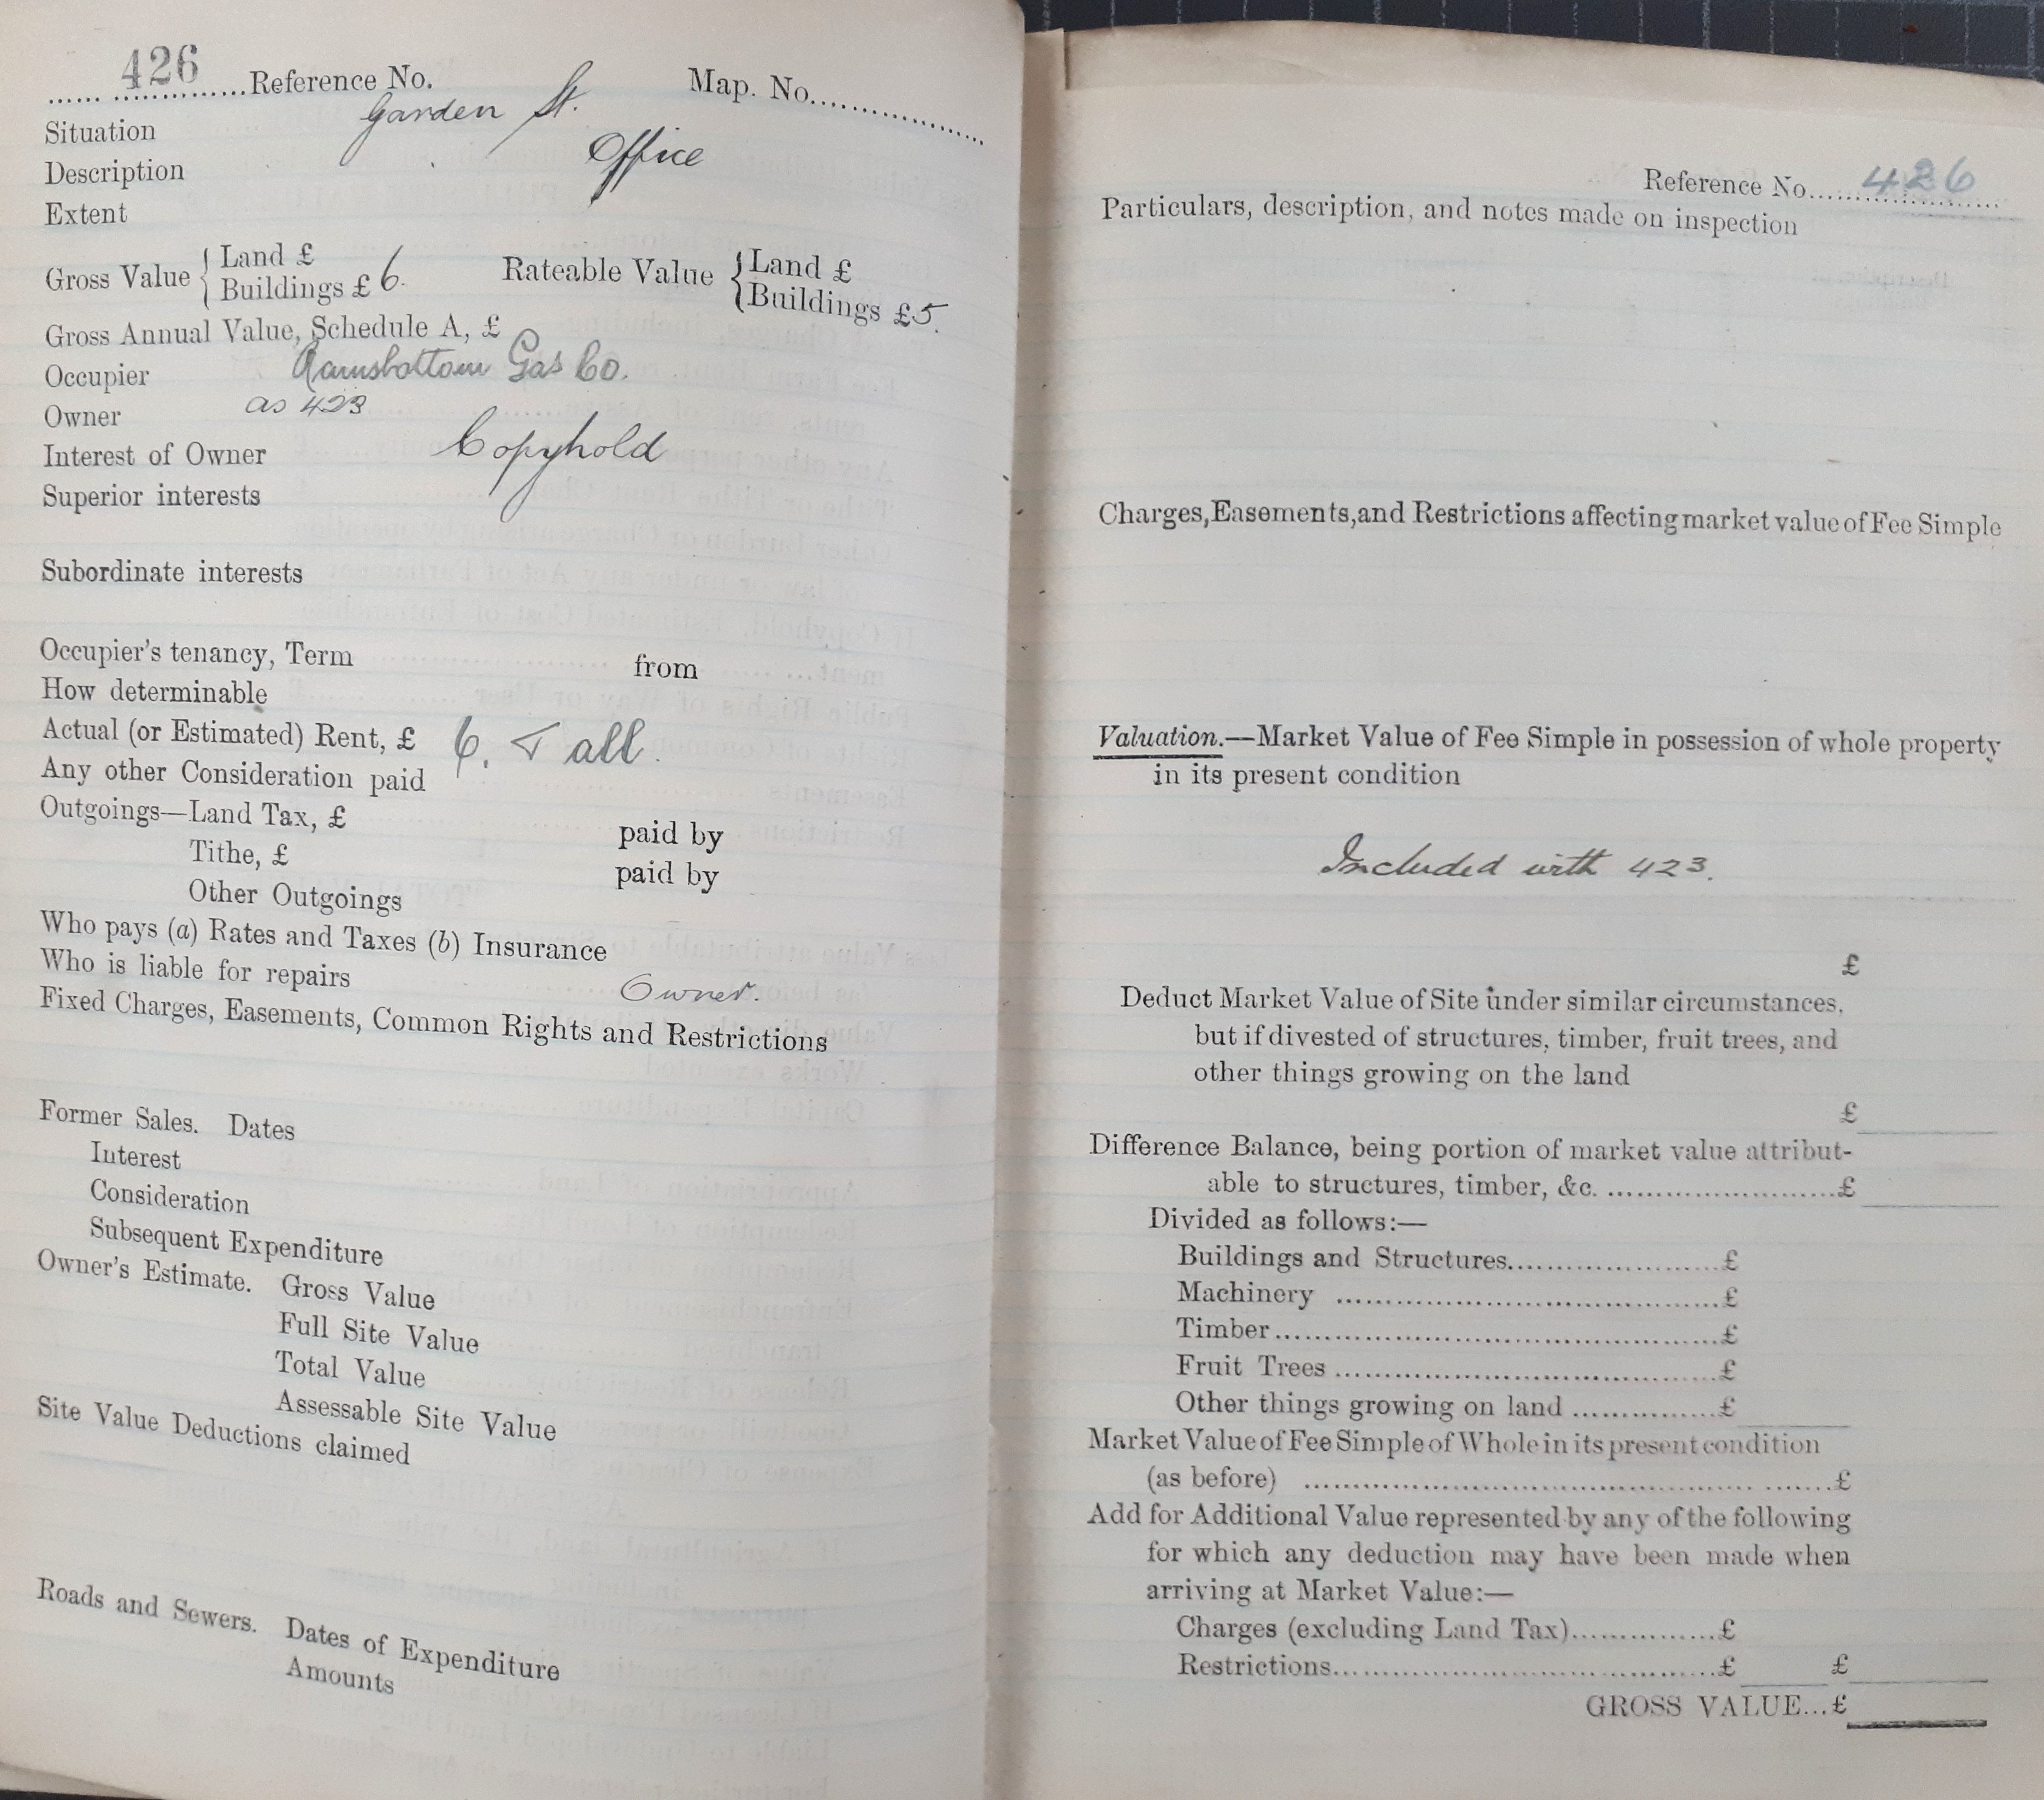 426 Reference No. Map. No.
Situation Garden St.
Description Office
Extent
Gross Value { Land £ Rateable Value { Land £
Buildings £ 6. Buildings £5.
Gross Annual Value, Schedule A, £
Occupier Ramsbottom Gas Co.
Owner as 423
Interest of Owner Copyhold
Superior interests
Subordinate interests
Occupier's tenancy, Term from
How determinable
Actual (or Estimated) Rent, £ 6. T all.
Any other Consideration paid
Outgoings—Land Tax, £ paid by
Tithe, £ paid by
Other Outgoings
Who pays (a) Rates and Taxes (b) Insurance
Who is liable for repairs Owner.
Fixed Charges, Easements, Common Rights and Restrictions
Former Sales. Dates
Interest
Consideration
Subsequent Expenditure
Owner's Estimate. Gross Value
Full Site Value
Total Value
Assessable Site Value
Site Value Deductions claimed
Roads and Sewers. Dates of Expenditure
Amounts
Reference No. 426
Particulars, description, and notes made on inspection
Charges, Easements, and Restrictions affecting market value of Fee Simple
Valuation.—Market Value of Fee Simple in possession of whole property
in its present condition
Included with 423.
£
Deduct Market Value of Site under similar circumstances,
but if divested of structures, timber, fruit trees, and
other things growing on the land
£
Difference Balance, being portion of market value attribut-
able to structures, timber, &c. £
Divided as follows:—
Buildings and Structures £
Machinery £
Timber £
Fruit Trees £
Other things growing on land £
Market Value of Fee Simple of Whole in its present condition
(as before) £
Add for Additional Value represented by any of the following
for which any deduction may have been made when
arriving at Market Value:—
Charges (excluding Land Tax) £
Restrictions £ £
GROSS VALUE...£